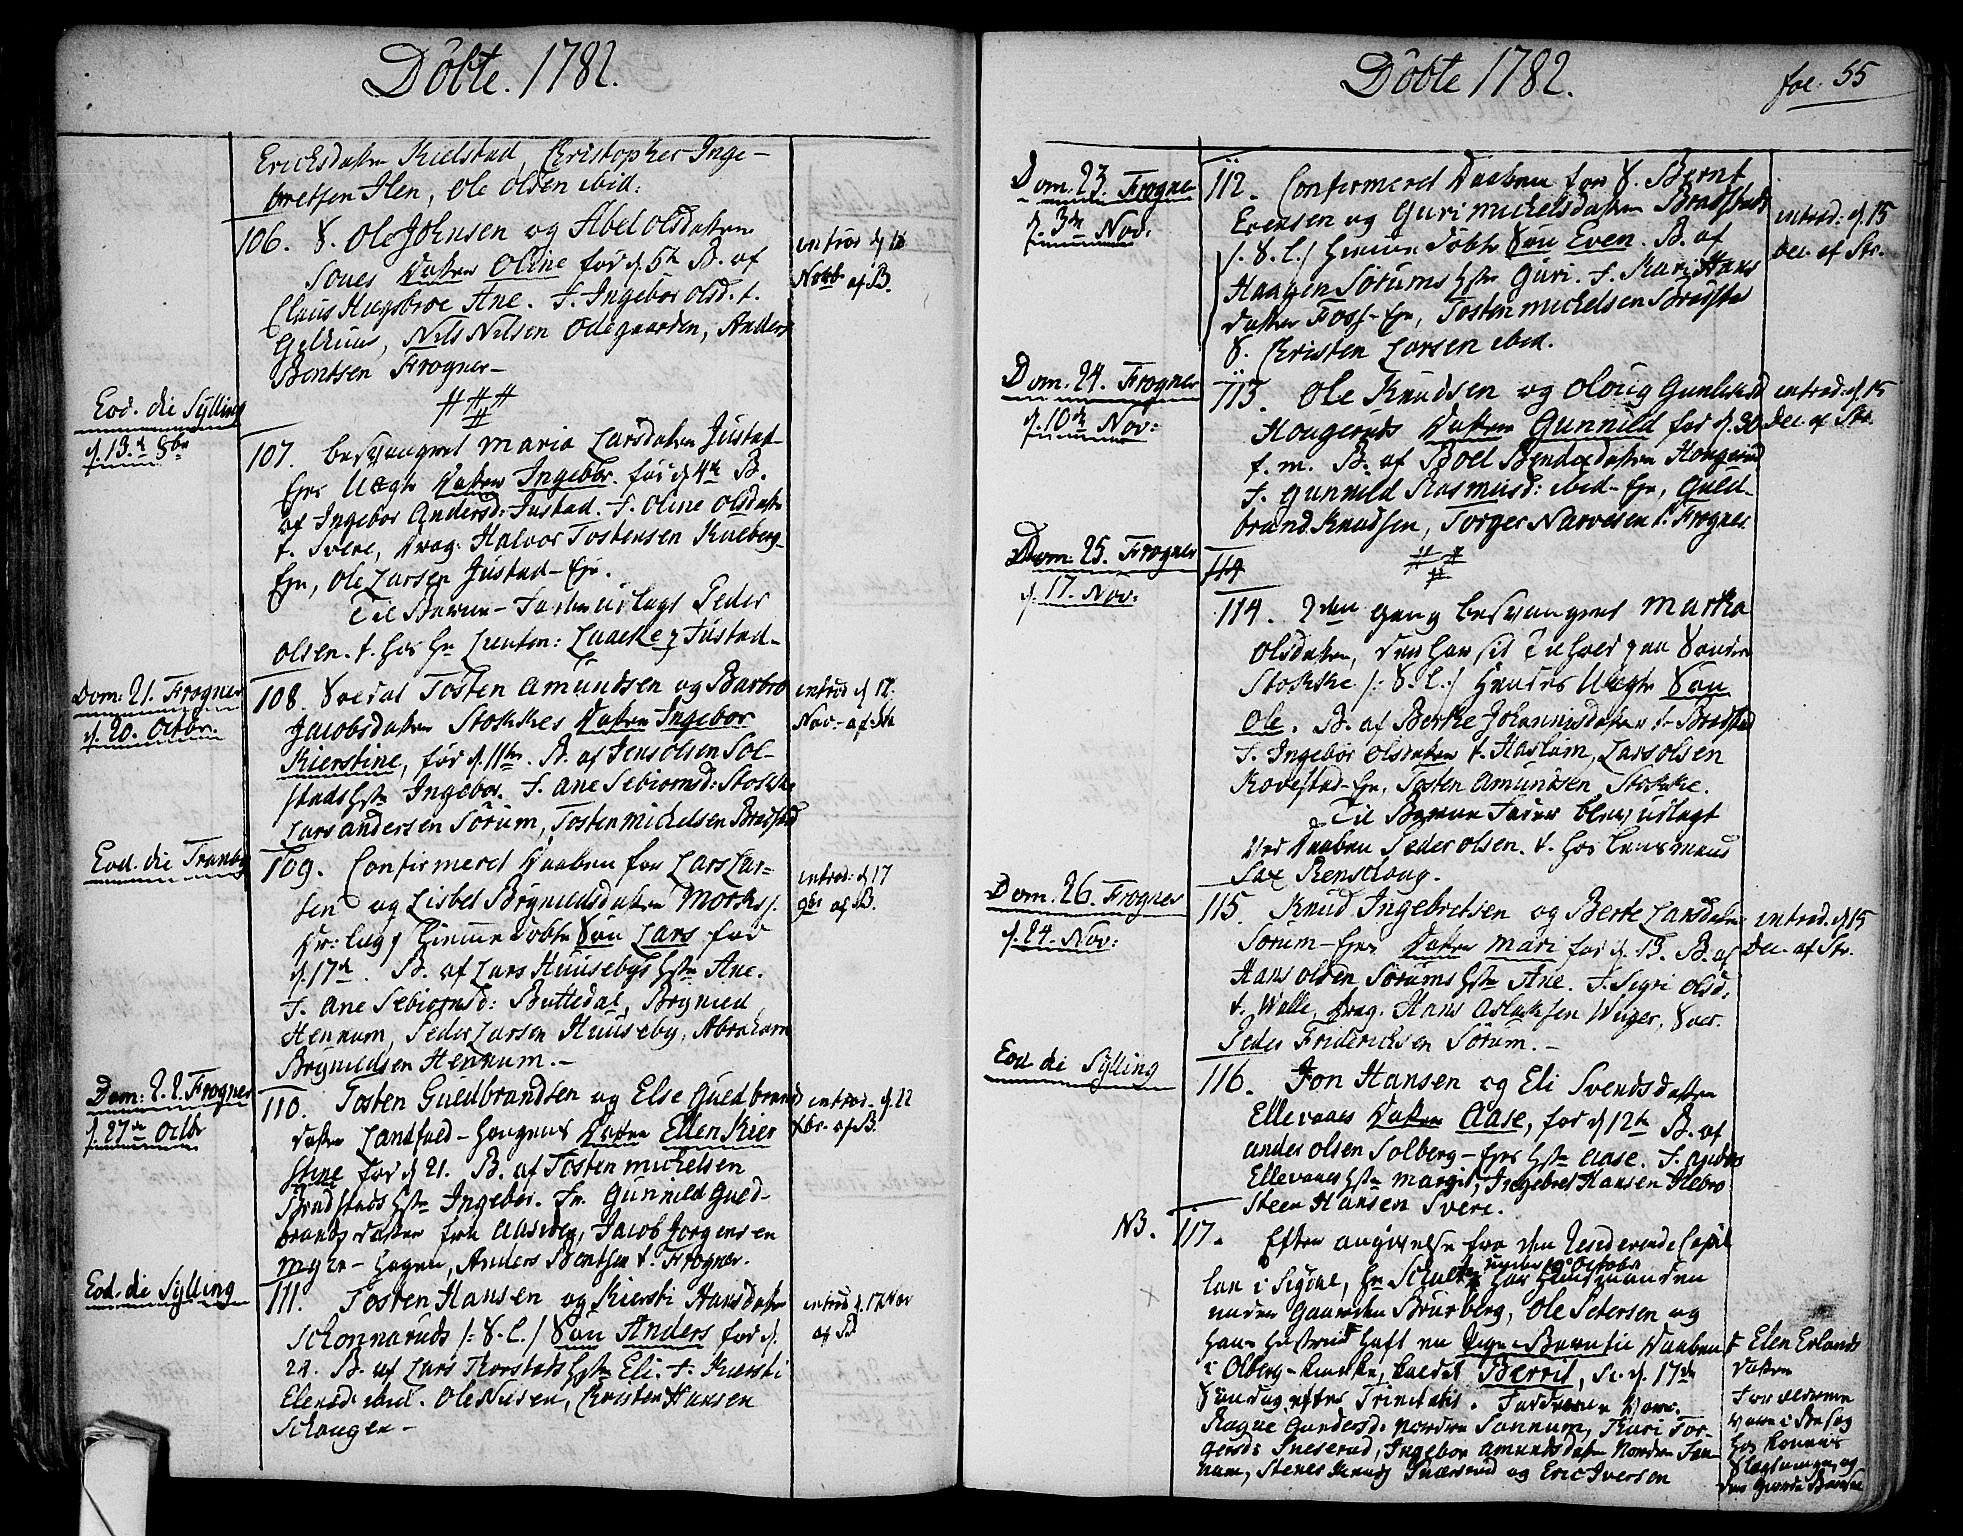 Döbte. 1782.
Ericksdatter Kielstad, Christopher Inge-
bretsen Ilen, Ole Olsen ibid:
106. S. Ole Johnsen og Abel Olsdatter
Datter Oline fød d. 5te B. af
Claus Huysbroe Ane. F. Ingebor Olsd. t.
Nils Nilsen Odegaarden, Anders
Bentsen Frogner-
introd d 18
Novb af B.
Eod. die Sylling
d. 13.de 8br
107. besvangret Maria Larsdatter Justad-
Ejes Uægte Datter Ingebor. fød d 4de B.
af Ingebor Andersd: Justad. F. Oline Olsdatter
t. Svere, Drag: Halvor Tostensen
Eje, Ole Larsen Justad-Eje.
Til Barne-Fader udlagt Peder
Olsen. t. hos Hr Lieuten: Justad-
Dom: 21. Frogner
d. 20. Octbr.
108. Soldat Tosten Amundsen og Barbro
Jacobsdatter Stokkes Datter Ingebor
Kierstine, fød d. 11te. B. af Jens Olsen Sol-
stads Hstr Ingebor. F. Ane Sebiornsd: Stokke
Lars Andersen Sørum, Tosten Michelsen Bradstad
introd d 17.
Nov. af Str
Eod. die Tranby
109. Confirmered Daaben for Lars Lar-
sen og Lisbet Brynildsdatter Morks
hiemme døbte Søn Lars fød
d. 17de. B. af Lars Huusebys Hstr Ane.
F. Ane Sebiornsd: Buttedal, Brynild
Hennum, Peder Larsen Huuseby, Abraham
Brynildsen Hennum.-
introd: d 17
9br af B.
Dom: 22. Frogner
d. 27de Octbr
110. Tosten Guldbrandsen og Else Guldbrands
datter Landfald-Hougens Datter Ellen Kier
stine fød d 21. B. af Tosten Michelsen
Bradstads Hstr Ingebor. Fr. Gunnild Guld-
brands datter fra Aasideg, Jacob Jorgensen
Myre-Hagen, Anders Bentsen t. Frogner.
introd. d. 22
af B.
Eod. di Sylling
111. Tosten Hansen og Kiersti Hansdatter
Schonnaruds /: S. L. / Søn Anders fød d.
21. B. af Lars Thorstads Hstr Eli. F. Kiersti
Elensd ibid. Ole Nilsen, Christen Hansen
Schougen-
introd d. 17 Nov
af B
Döbte 1782.
fol. 55
Dom. 23. Frogner
d. 3die Nov.
112. Confirmered Daaben for S. Bernt
Evensen og Guri Michelsdatter Bradstads
/. S. L. / hiemme døbte Søn Even. B. af
Haagen Sørums Hstr Guri. F. Kari Hans
datter Foss-Eje, Tosten Michelsen Bradstad
S. Christen Larsen ibid.
introd: d. 15
Dec. af Str.
Dom. 24. Frogner
d. 10de Nov:
113. Ole Knudsen og Oloug Gunlicksd
Hougeruds Datter Gunnild fød d. 30.
f. m. B. af Boel Bendixdatter Hougerud
F. Gunnild Rasmusd: ibid-Eje, Guld-
brand Knudsen, Torger Narvesen t. Frogner
introd. d. 15
Dec. af Str.
Dom. 25. Frogner
d. 17. Nov:
114
114. 2den gang besvangret Martha
Olsdatter, der har sit Tilhold paa Søndre
Stokke /: S. L. / hendes Uægte Søn
Ole. B. af Berthe Johannisdatter t. Bradstad
F. Ingebor Olsdatter t. Haslum, Lars Olsen
Kovestad-Eje, Tosten Amundsen Stokke.
Til Barne Fader blev udlagt
ved Daaben Peder Olsen. t. hos Lensmand
Sax Renskoug.
Dom. 26. Frogner
d. 24. Nov:
115. Knud Ingebretsen og Berte Larsdatter
Sorum-Ejes Datter Mari fød d. 13. B. af
Hans Olsen Sørums Hstr Ane. F. Sigri Olsd:
t. Walle, Drag. Hans Aslachsen Weiger, Sver.
Peder Friderichsen Sørum.-
introd. d 15
Dec. af Str.
Eod di Sylling
116. Jon Hansen og Eli Svendsdatter
Ellevaaes Datter Aase, fød d 12te B. af
Anders Olsen Solberg-Ejes Hstr Aase. F. Anders
Ellevaaes Hstr Margit, Ingebret Hansen
Steen Hansen Svere.
NB. 117. Efter angivelse fra den Residerende Capel
lan i Sigdal, Hr Schultz under 19de Octobr har Huusmanden
under Gaarden Bruberg, Ole Petersen og
hans Hustrue + haft en Pige-Barn til Daaben
i Olberg-Kirke, kaldet Berrit, sc. d. 17de
Søndag efter Trinitatis. Faddrene vare.
Ragne Gundersd: Nordre Sonnum, Kari Tor-
gersd: Ingebor Amundsdatter Nordre
num, Stener og Eric Iversen
+ Elen Erlands
datter
Forældrene
vare i Besøg
hos Konens
Slægtninger, og